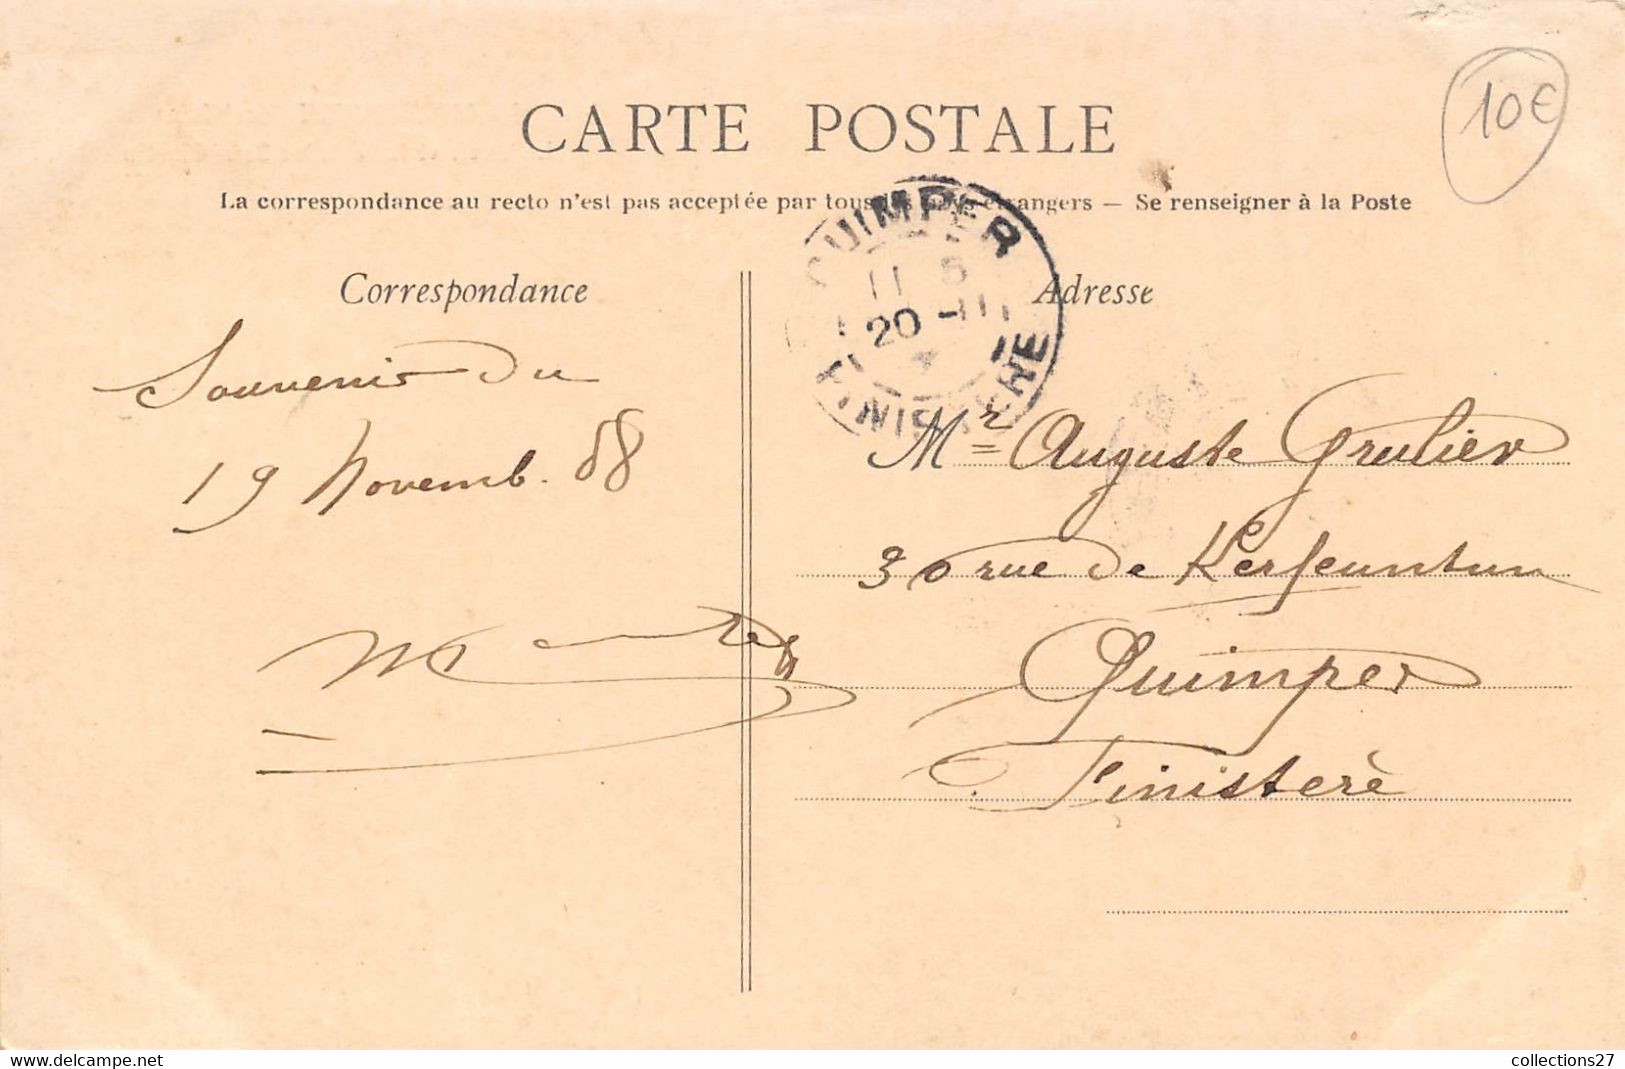 10€
CARTE POSTALE
La correspondance au recto n'est pas acceptée par tous les pays étrangers — Se renseigner à la Poste
QUIMPER
11 5
20 -11
FINISTERE
Correspondance
Souvenir du
19 Novemb. 08
Adresse
Mr Auguste Grulier
30 rue de Kerfeuntun
Quimper
Finisterè
www.delcampe.net
collections27